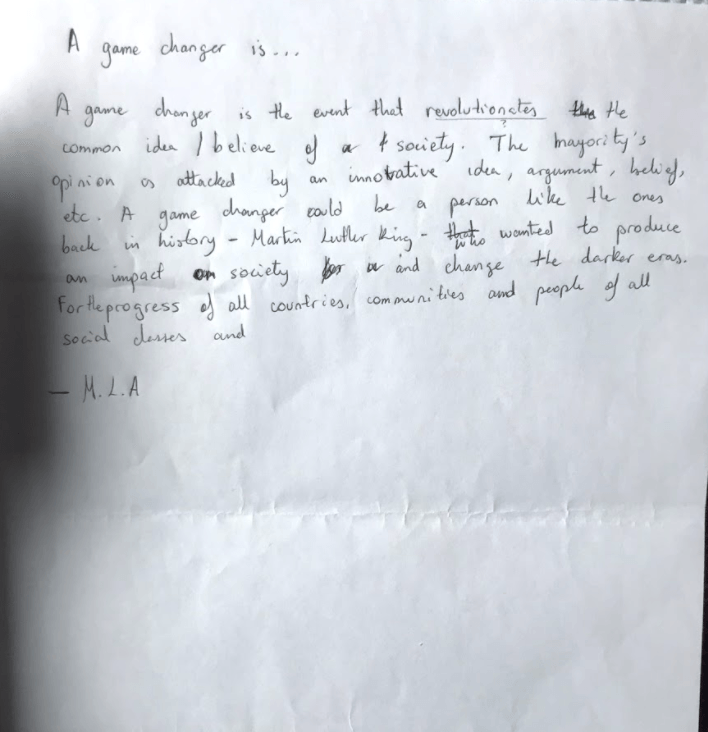 A game changer is...
A game changer is the event that revolutionates the
?
common idea / believe of a society. The mayority's
opinion is attacked by an innovative idea, argument, belief,
etc. A game changer could be a person like the ones
back in history – Martin Lutler King – who wanted to produce
an impact on society and change the darker eras.
For the progress of all countries, communities and people of all
social classes and
– M.L.A